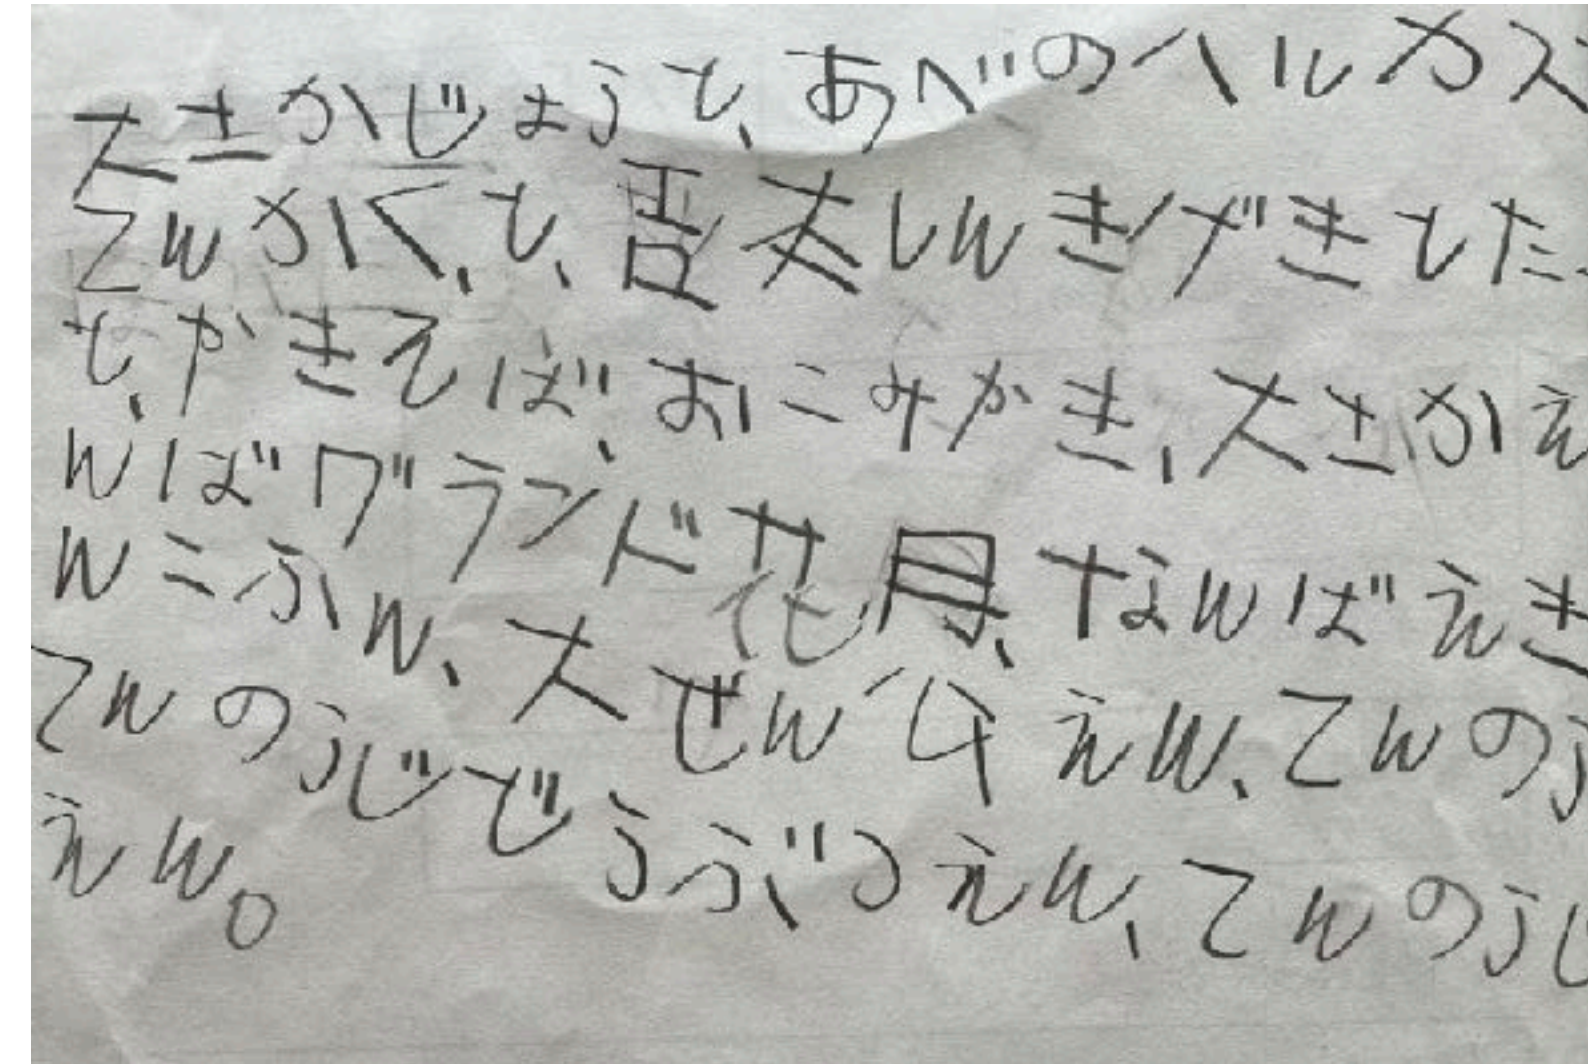 大さかじょうと、あべのハルカス
てんかく、と、吉本しんきげきとた
と、やきそば、おこみやき、大さかえ
んばグランド花月、なんばえき
んこふん、大ぜん公えん、てんのう
てんのうじどうぶつえん、てんのうじ
えん。